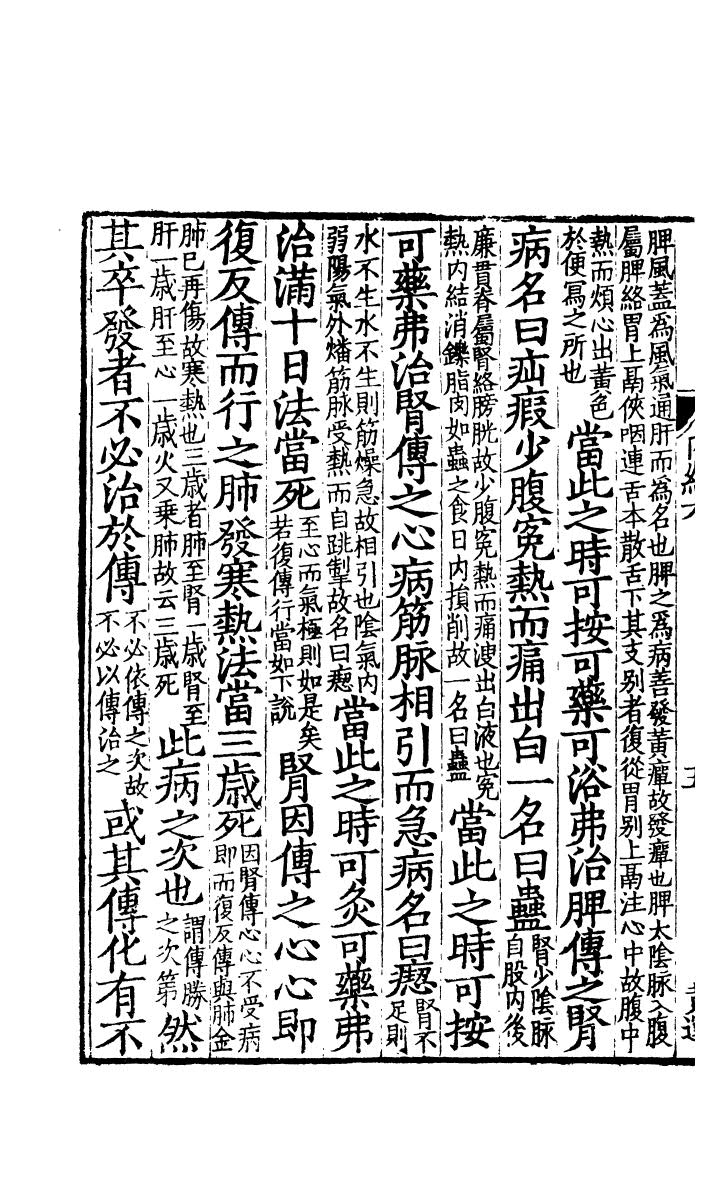 脾風蓋為風氣通肝而為名也脾之為病善發黃癉故發癉也脾太陰脉入腹
屬脾絡胃上鬲俠咽連舌本散舌下其支别者復從胃别上鬲注心中故腹中
熱而煩心出黃色
於便寫之所也
當此之時可按可藥可浴弗治脾傳之腎
病名曰疝瘕少腹寃熱而痛出白一名曰蠱
腎少陰脉
自股内後
廉貫脊屬腎絡膀胱故少腹寃熱而痛溲出白液也寃
熱内結消鑠脂肉如蟲之食日内損削故一名曰蠱
當此之時可按
可藥弗治腎傳之心病筋脉相引而急病名曰瘛
腎不
足則
水不生水不生則筋燥急故相引也陰氣内
弱陽氣外燔筋脉受熱而自跳掣故名曰瘛
當此之時可灸可藥弗
治滿十日法當死
至心而氣極則如是矣
若復傳行當如下說
腎因傳之心心即
復反傳而行之肺發寒熱法當三歳死
因腎傳心心不受病
即而復反傳與肺金
肺已再傷故寒熱也三歳者肺至腎一歳腎至
肝一歳肝至心一歳火又乘肺故云三歳死
此病之次也
謂傳勝
之次第
然
其卒發者不必治於傳
不必依傳之次故
不必以傳治之
或其傳化有不